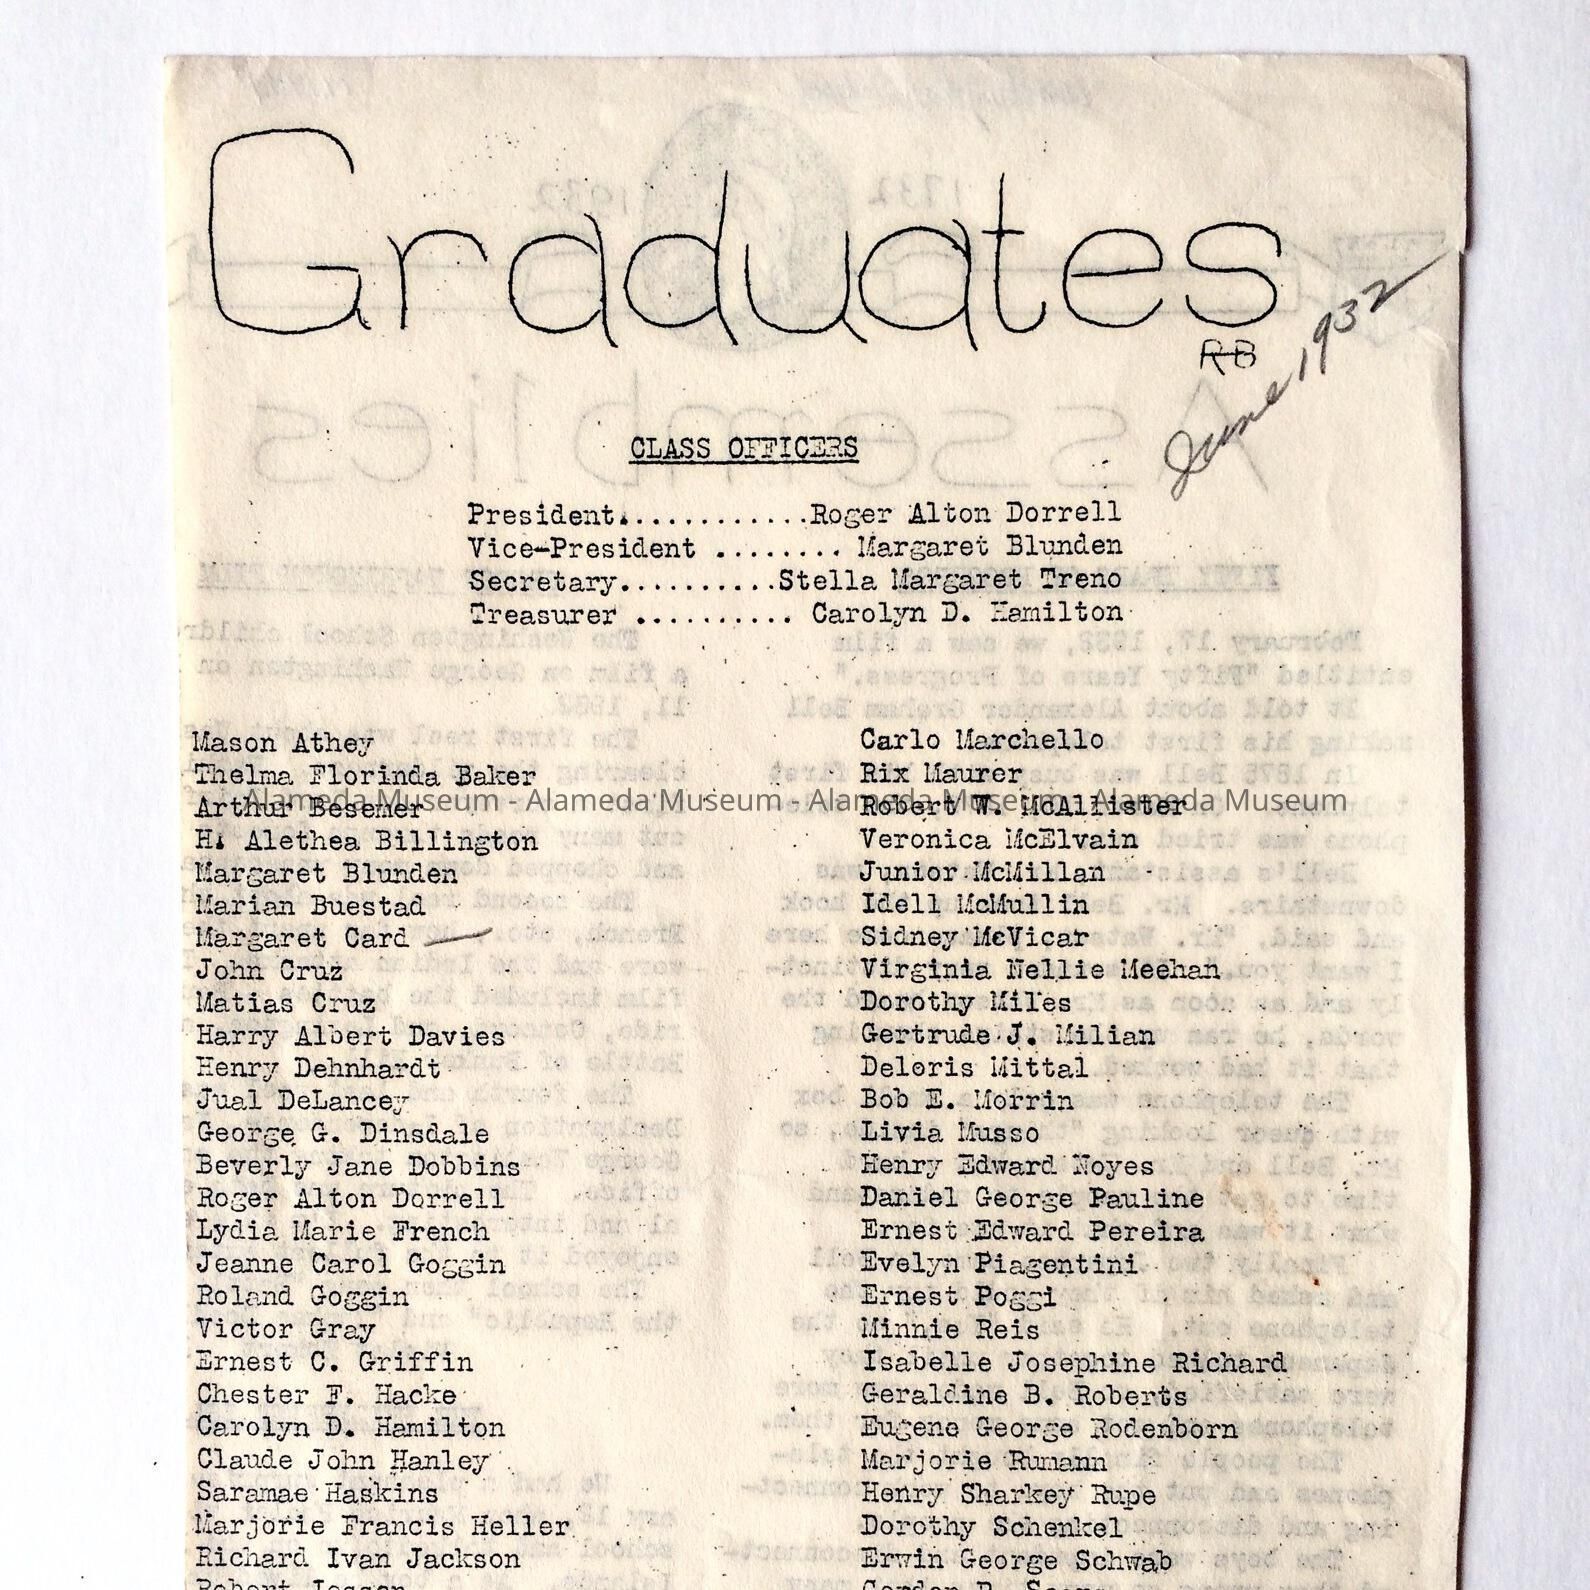 Graduates
RB
June 1932
CLASS OFFICERS
President............Roger Alton Dorrell
Vice-President ........ Margaret Blunden
Secretary..........Stella Margaret Treno
Treasurer .......... Carolyn D. Hamilton
Mason Athey
Thelma Florinda Baker
Arthur Besemer
H. Alethea Billington
Margaret Blunden
Marian Buestad
Margaret Card
John Cruz
Matias Cruz
Harry Albert Davies
Henry Dehnhardt
Jual DeLancey
George G. Dinsdale
Beverly Jane Dobbins
Roger Alton Dorrell
Lydia Marie French
Jeanne Carol Goggin
Roland Goggin
Victor Gray
Ernest C. Griffin
Chester F. Hacke
Carolyn D. Hamilton
Claude John Hanley
Saramae Haskins
Marjorie Francis Heller
Richard Ivan Jackson
Robert
Carlo Marchello
Rix Maurer
Robert W. McAllister
Veronica McElvain
Junior McMillan
Idell McMullin
Sidney McVicar
Virginia Nellie Meehan
Dorothy Miles
Gertrude J. Milian
Deloris Mittal
Bob E. Morrin
Livia Musso
Henry Edward Noyes
Daniel George Pauline
Ernest Edward Pereira
Evelyn Piagentini
Ernest Poggi
Minnie Reis
Isabelle Josephine Richard
Geraldine B. Roberts
Eugene George Rodenborn
Marjorie Rumann
Henry Sharkey Rupe
Dorothy Schenkel
Erwin George Schwab
Alameda Museum - Alameda Museum - Alameda Museum - Alameda Museum